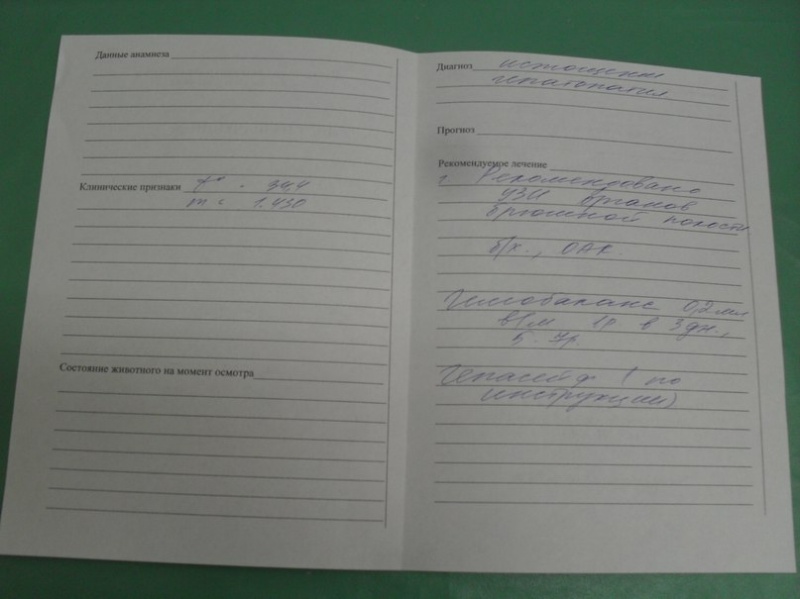 Данные анамнеза
Клинические признаки t° - 34,4
m = 1.430
Состояние животного на момент осмотра
Диагноз истощение
гепатопатия
Прогноз
Рекомендуемое лечение
Рекомендовано
УЗИ органов
брюшной полости
б/х., ОАК.
Гемобаланс 0,2 мл
в/м 1р. в 3 дн.,
5
Гепасейф (по
инструкции)